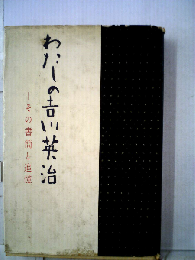 わたしの吉川英治
—その書簡と追憶